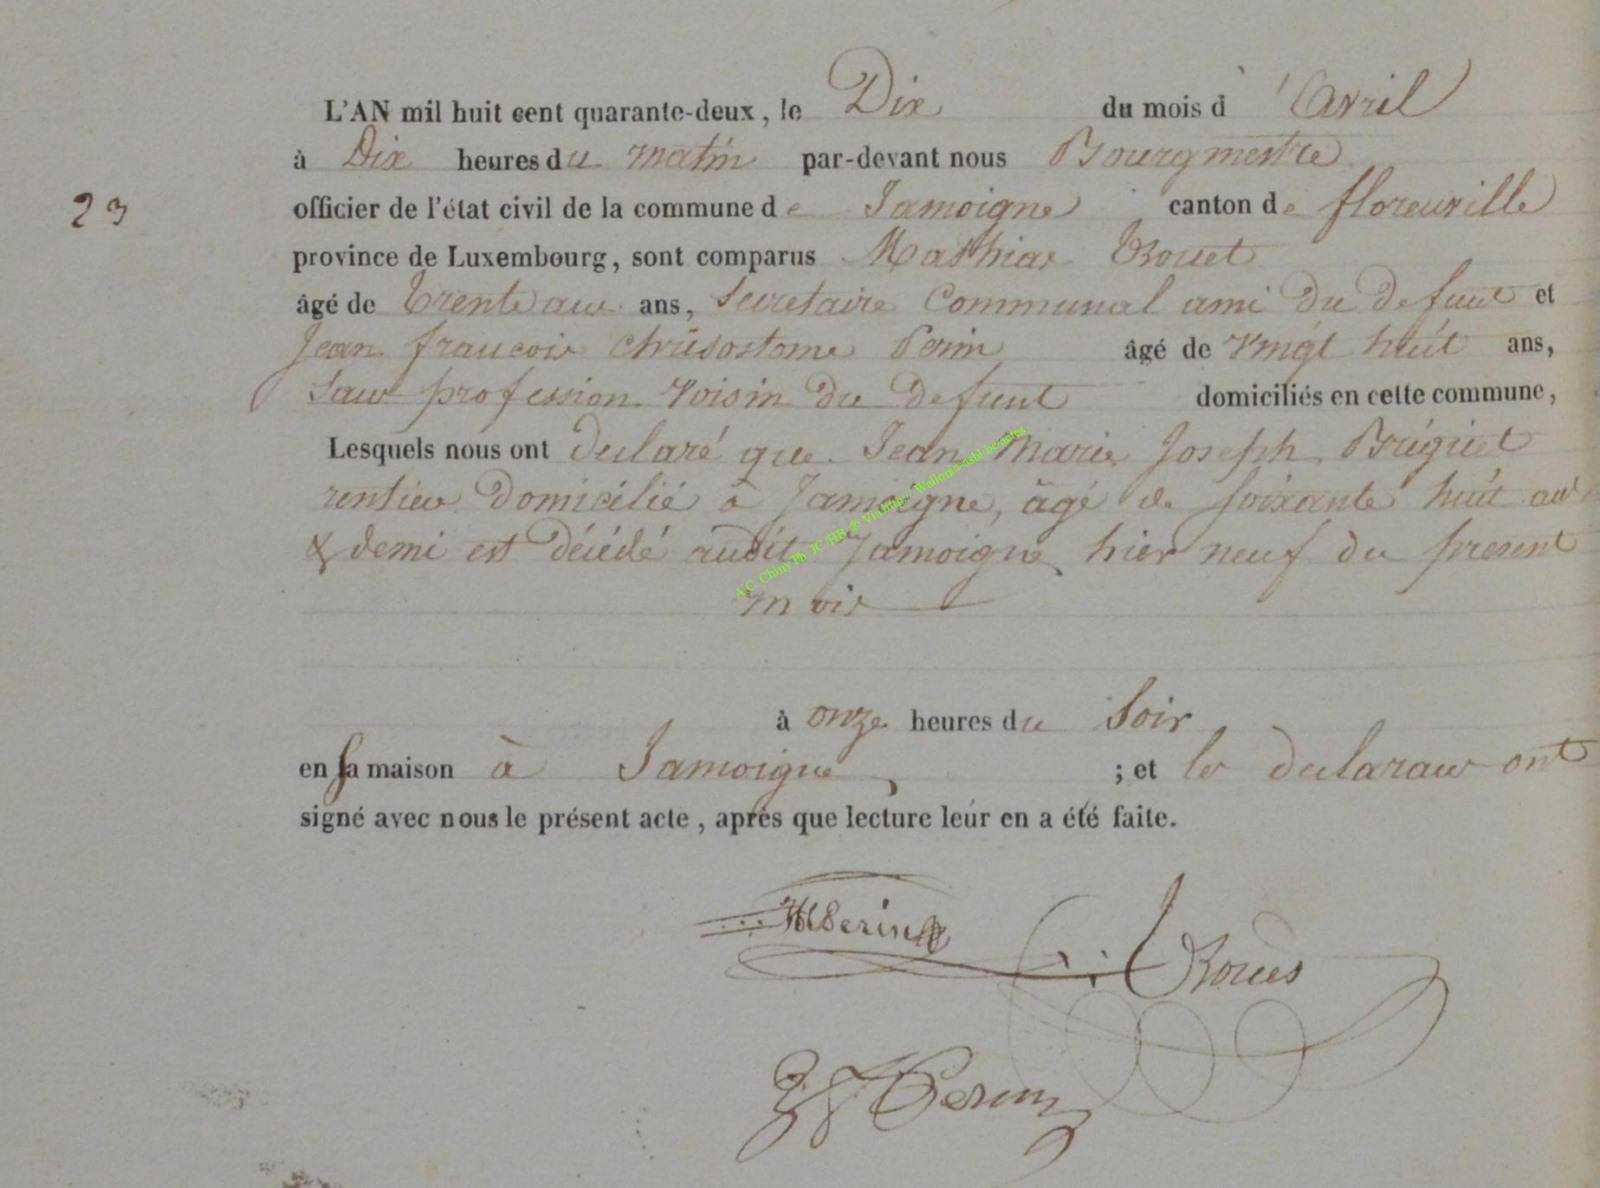 L'AN mil huit cent quarante-deux, le Dix du mois d'Avril
à Dix heures du matin par-devant nous Bourgmestre
23
officier de l'état civil de la commune de Jamoigne canton de florenville
province de Luxembourg, sont comparus Mathias Rouet
âgé de trente ans, Secretaire Communal ami du defunt et
Jean françois chrisostome Perin âgé de vingt huit ans,
Sans profession voisin du defunt domiciliés en cette commune,
Lesquels nous ont declaré que Jean Marie Joseph Bréguet
rentier domicilié à Jamoigne, âgé de soixante huit ans
& demi est décédé audit Jamoigne hier neuf du present
mois
à onze heures du Soir
en sa maison à Jamoigne, ; et les declarans ont
signé avec nous le présent acte, après que lecture leur en a été faite.
Perin
Rouet
JF Perin